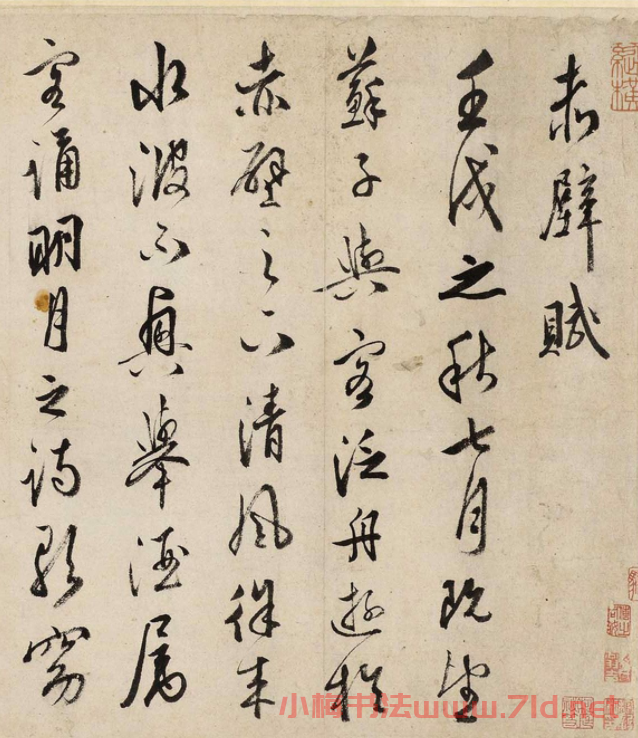 赤壁賦
壬戌之秋七月既望
蘇子與客泛舟遊於
赤壁之下清風徐來
水波不興舉酒屬
客誦明月之詩歌窈
小梅书法www.7ld.net